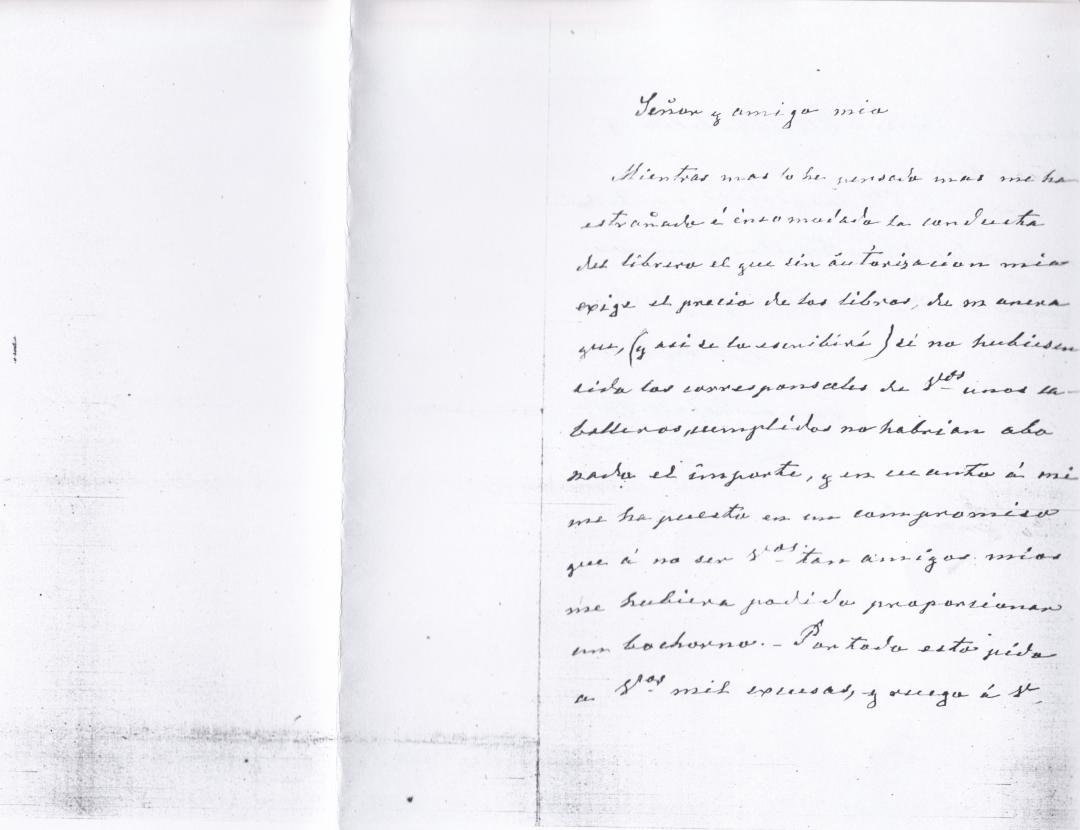 Señor y amigo mio
Mientras mas lo he pensado mas me ha
estrañado é incomodado la conducta
del librero el que sin autorizacion mia
exige el precio de los libros, de manera
que, (y asi se lo escribiré) si no hubiesen
sido los corresponsales de Vdos unos ca-
balleros, cumplidos no habrian abo
nado el importe, y en cuanto á mi
me ha puesto en un compromiso
que á no ser Vdos tan amigos mios
me hubiera podido proporcionar
un bochorno. - Por todo esto pido
a Vdos mil excusas, y ruego á V